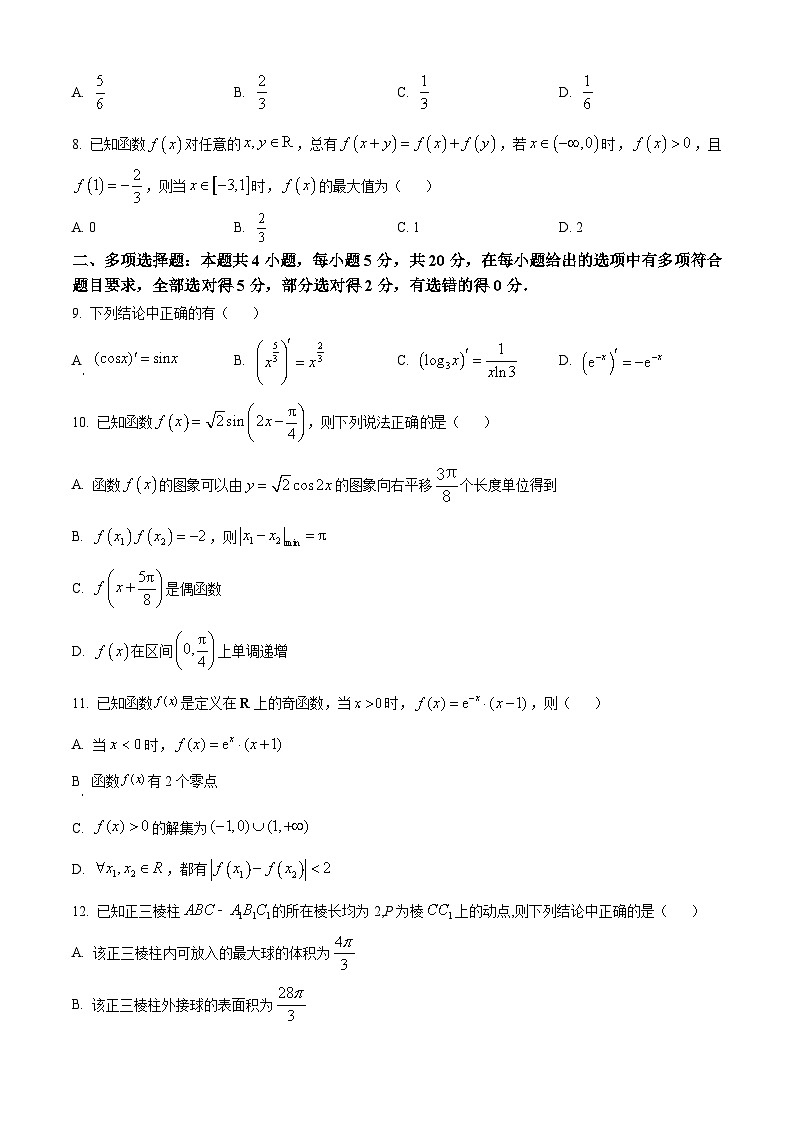 A. 5/6 B. 2/3 C. 1/3 D. 1/6
8. 已知函数 f(x) 对任意的 x, y ∈ R，总有 f(x+y) = f(x) + f(y)，若 x ∈ (−∞,0) 时，f(x) > 0，且
f(1) = −2/3，则当 x ∈ [−3,1] 时，f(x) 的最大值为（　　）
A. 0 B. 2/3 C. 1 D. 2
二、多项选择题：本题共 4 小题，每小题 5 分，共 20 分，在每小题给出的选项中有多项符合
题目要求，全部选对得 5 分，部分选对得 2 分，有选错的得 0 分．
9. 下列结论中正确的有（　　）
A. (cosx)′ = sinx B. (x^(5/3))′ = x^(2/3) C. (log₃x)′ = 1/(xln3) D. (e⁻ˣ)′ = −e⁻ˣ
10. 已知函数 f(x) = √2 sin(2x − π/4)，则下列说法正确的是（　　）
A. 函数 f(x) 的图象可以由 y = √2 cos2x 的图象向右平移 3π/8 个长度单位得到
B. f(x₁)f(x₂) = −2，则 |x₁ − x₂|min = π
C. f(x + 5π/8) 是偶函数
D. f(x) 在区间 (0, π/4) 上单调递增
11. 已知函数 f(x) 是定义在 R 上的奇函数，当 x > 0 时，f(x) = e⁻ˣ·(x−1)，则（　　）
A. 当 x < 0 时，f(x) = eˣ·(x+1)
B. 函数 f(x) 有 2 个零点
C. f(x) > 0 的解集为 (−1,0)∪(1,+∞)
D. ∀x₁, x₂ ∈ R，都有 |f(x₁) − f(x₂)| < 2
12. 已知正三棱柱 ABC - A₁B₁C₁ 的所在棱长均为 2,P 为棱 CC₁ 上的动点,则下列结论中正确的是（　　）
A. 该正三棱柱内可放入的最大球的体积为 4π/3
B. 该正三棱柱外接球的表面积为 28π/3